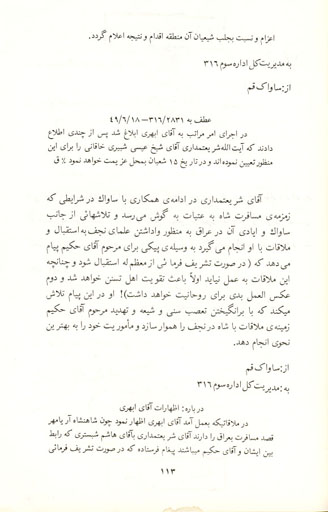 اعزام و نسبت بجلب شیعیان آن منطقه اقدام و نتیجه اعلام گردد.
به مدیریت کل اداره سوم ۳۱۶
از: ساواک قم
عطف به ۳۱۶/۲۸۳۱-۴۹/۶/۱۸
در اجرای امر مراتب به آقای ابهری ابلاغ شد پس از چندی اطلاع
دادند که آیت‌الله شریعتمداری آقای شیخ عیسی شبیری خاقانی را برای این
منظور تعیین نموده‌اند و در تاریخ ۱۵ شعبان بمحل عزیمت خواهد نمود ق
آقای شریعتمداری در ادامه‌ی همکاری با ساواک در شرایطی که
زمزمه‌ی مسافرت شاه به عتبات به گوش می‌رسد و تلاشهائی از جانب
ساواک و ایادی آن در عراق به منظور واداشتن علمای نجف به استقبال و
ملاقات با او انجام می‌گیرد به وسیله‌ی پیکی برای مرحوم آقای حکیم پیام
می‌دهد که (در صورت تشریف فرمائی از معظم له استقبال شود و چنانچه
این ملاقات به عمل نیاید اولاً باعث تقویت اهل تسنن خواهد شد و دوم
عکس العمل بدی برای روحانیت خواهد داشت)! او در این پیام تلاش
میکند که با برانگیختن تعصب سنی و شیعه و تهدید مرحوم آقای حکیم
زمینه‌ی ملاقات با شاه در نجف را هموار سازد و مأموریت خود را به بهترین
نحوی انجام دهد.
از: ساواک قم
به: مدیریت کل اداره سوم ۳۱۶
درباره: اظهارات آقای ابهری
در ملاقاتیکه بعمل آمد آقای ابهری اظهار نمود چون شاهنشاه آریامهر
قصد مسافرت بعراق را دارند آقای شریعتمداری بآقای هاشم شبستری که رابط
بین ایشان و آقای حکیم میباشند پیغام فرستاده که در صورت تشریف فرمائی
۱۱۳